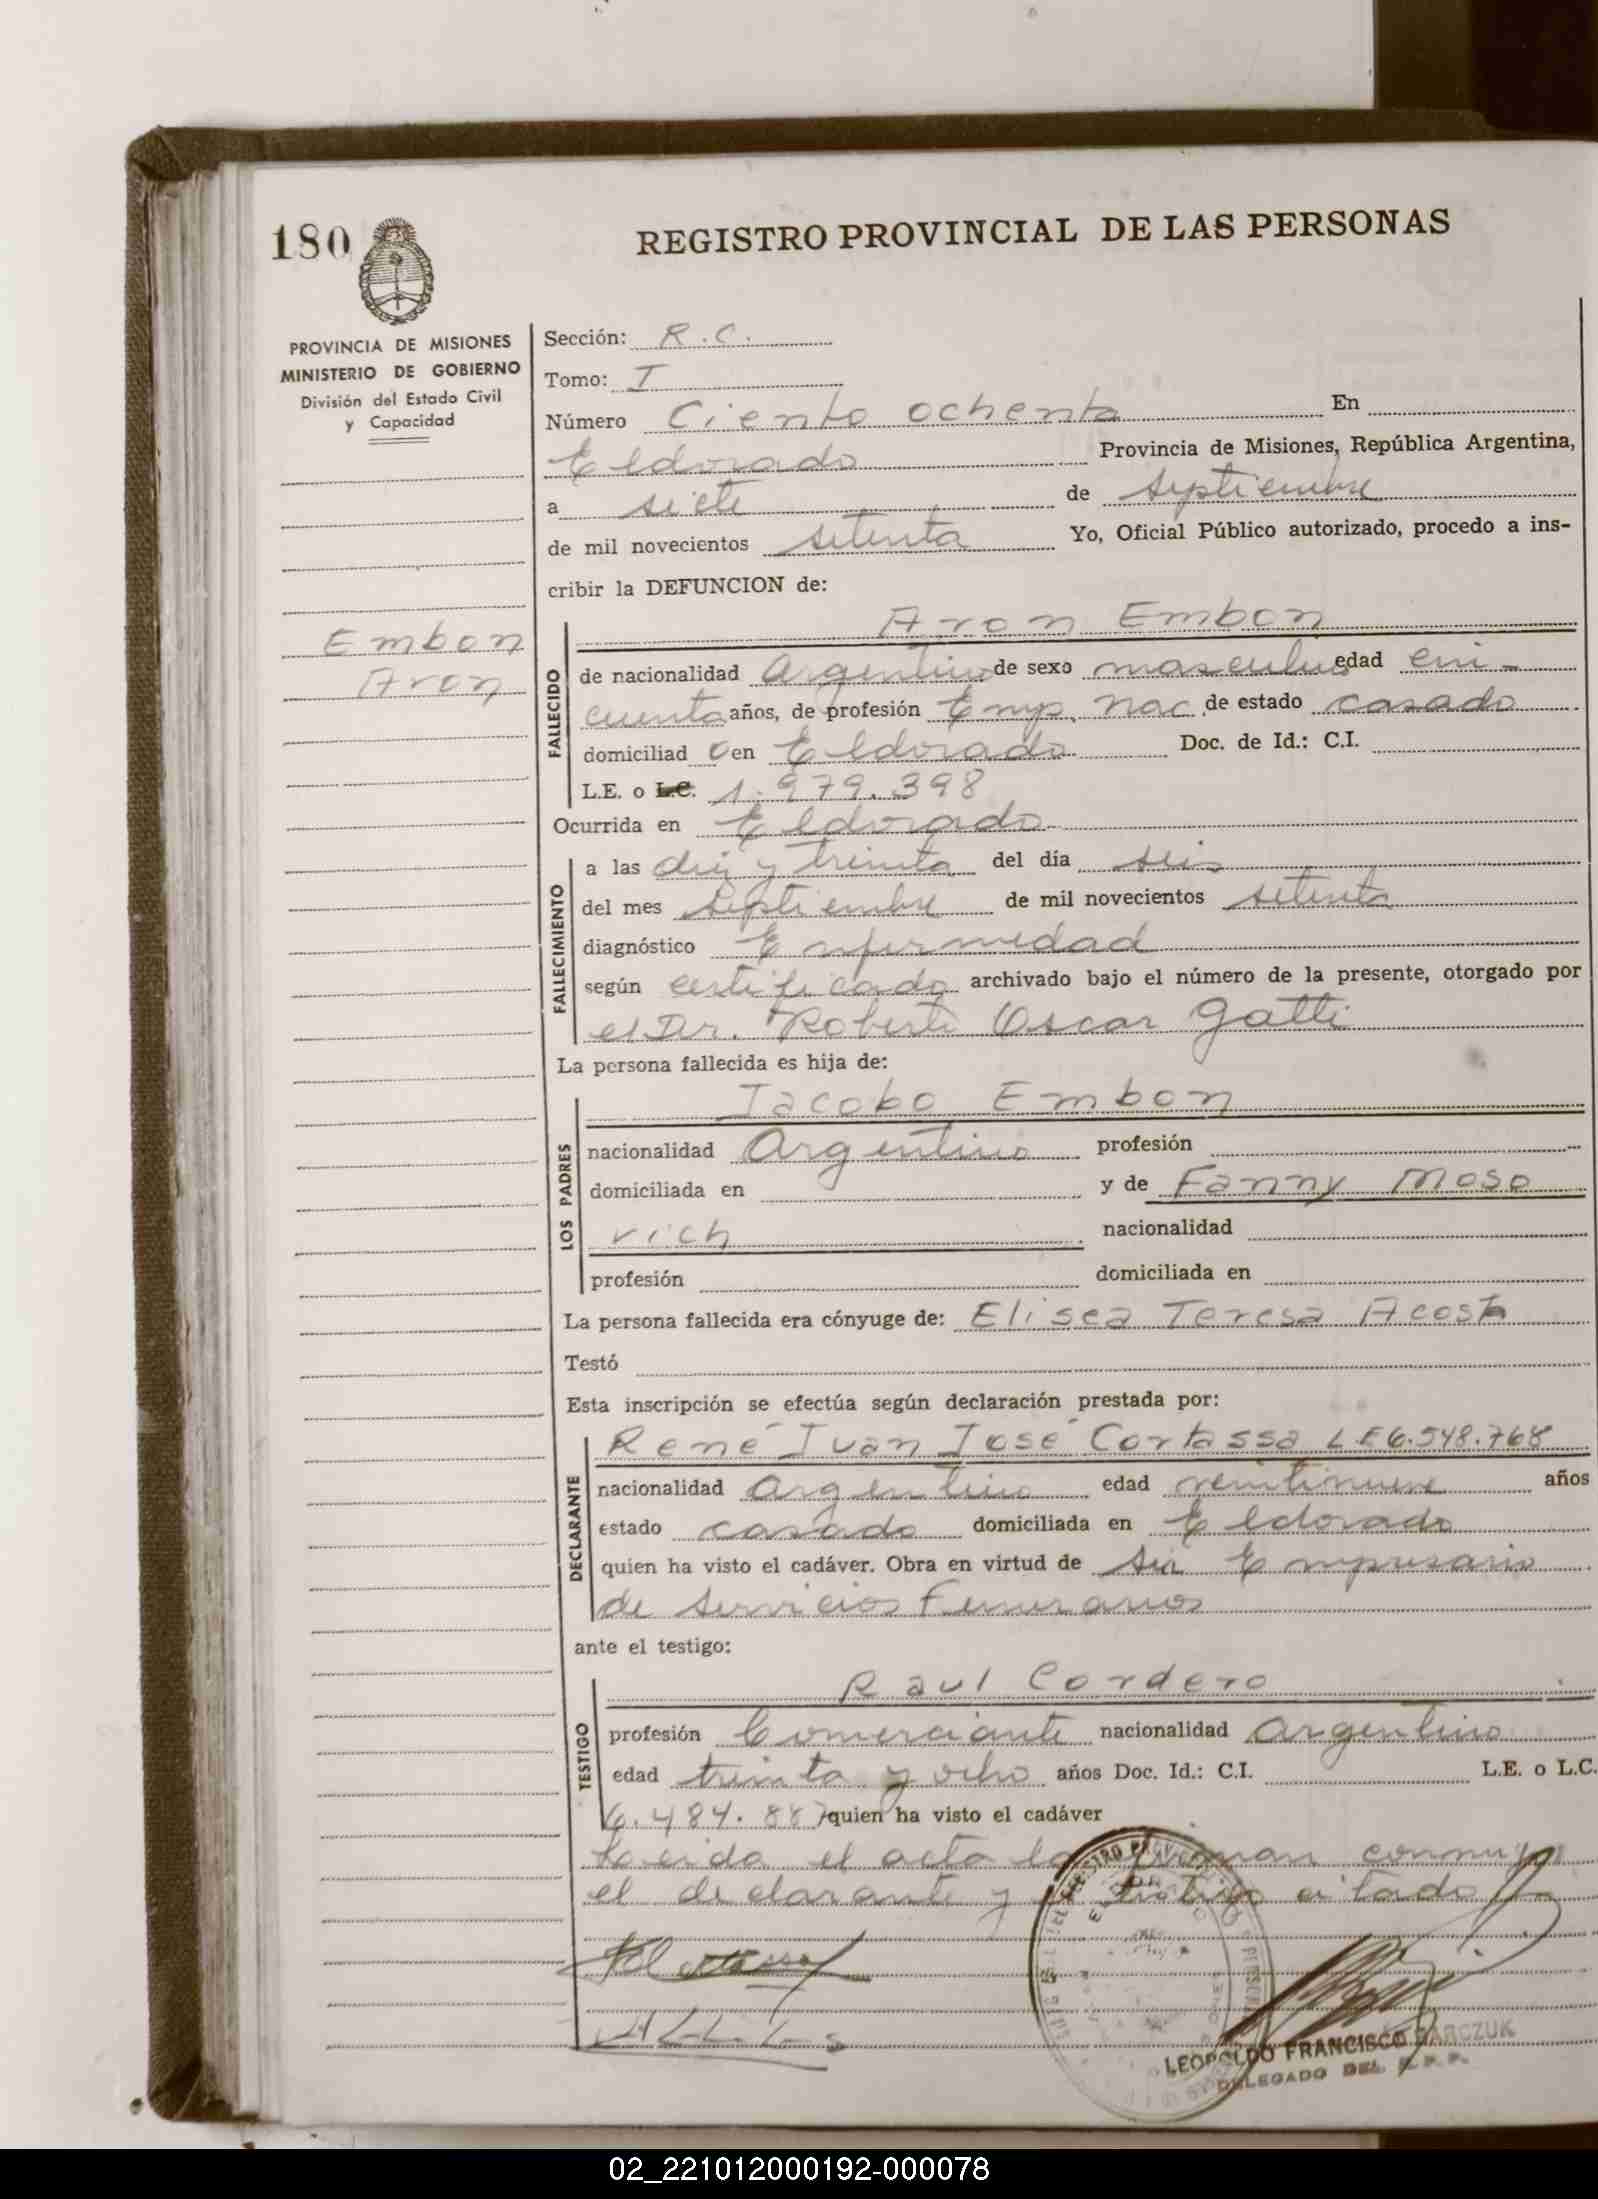 180
REGISTRO PROVINCIAL DE LAS PERSONAS
PROVINCIA DE MISIONES
MINISTERIO DE GOBIERNO
División del Estado Civil
y Capacidad
Embon
Aron
Sección: R.C.
Tomo: I
Número Ciento ochenta En
Eldorado Provincia de Misiones, República Argentina,
a siete de septiembre
de mil novecientos setenta Yo, Oficial Público autorizado, procedo a ins-
cribir la DEFUNCION de:
FALLECIDO
Aron Embon
de nacionalidad Argentino de sexo masculino edad cin-
cuenta años, de profesión Emp. Nac. de estado casado
domiciliad o en Eldorado Doc. de Id.: C.I.
L.E. o L.C. 1.979.398
Ocurrida en Eldorado
FALLECIMIENTO
a las diez y treinta del día seis
del mes septiembre de mil novecientos setenta
diagnóstico Enfermedad
según certificado archivado bajo el número de la presente, otorgado por
el Dr. Roberto Oscar Gatti
La persona fallecida es hija de:
LOS PADRES
Jacobo Embon
nacionalidad Argentino profesión
domiciliada en y de Fanny Moso
vich nacionalidad
profesión domiciliada en
La persona fallecida era cónyuge de: Elisea Teresa Acosta
Testó
Esta inscripción se efectúa según declaración prestada por:
DECLARANTE
René Juan José Cortassa L E 6.548.768
nacionalidad Argentino edad veintinueve años
estado casado domiciliada en Eldorado
quien ha visto el cadáver. Obra en virtud de ser Empresario
de Servicios Funerarios
ante el testigo:
TESTIGO
Raul Cordero
profesión Comerciante nacionalidad Argentino
edad treinta y ocho años Doc. Id.: C.I. L.E. o L.C.
6.484.887 quien ha visto el cadáver
Leida el acta la firman conmigo
el declarante y testigo citado
LEOPOLDO FRANCISCO
DELEGADO DEL R.P.P.
02_221012000192-000078